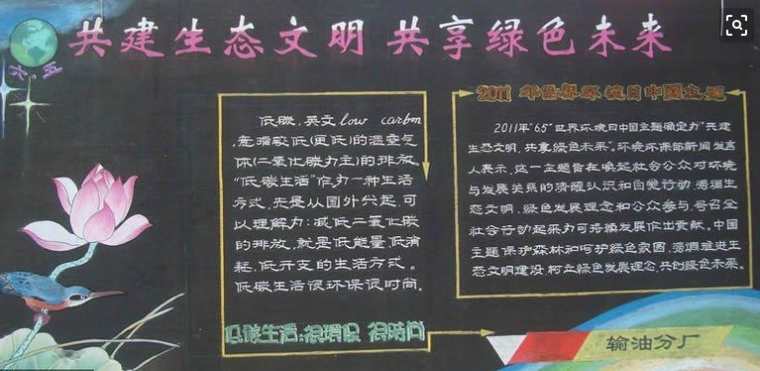 共建生态文明 共享绿色未来
六·五
低碳,英文low carbon,
意指较低(更低)的温室气
体(二氧化碳为主)的排放。
“低碳生活”作为一种生活
方式,先是从国外兴起,可
以理解为:减低二氧化碳
的排放,就是低能量、低消
耗、低开支的生活方式。
低碳生活很环保很时尚。
低碳生活:很环保 很时尚
2011年世界环境日中国主题
2011年“65”世界环境日中国主题确定为“共建
生态文明,共享绿色未来”。环境环保部新闻发言
人表示,这一主题旨在唤起社会公众对环境
与发展关系的清醒认识和自觉行动,
生态文明、绿色发展理念和公众参与,号召全
社会行动起来为可持续发展作出贡献。中国
主题保护森林和呵护绿色家园,推进生
态文明建设,树立绿色发展理念,共创绿色未来。
输油分厂